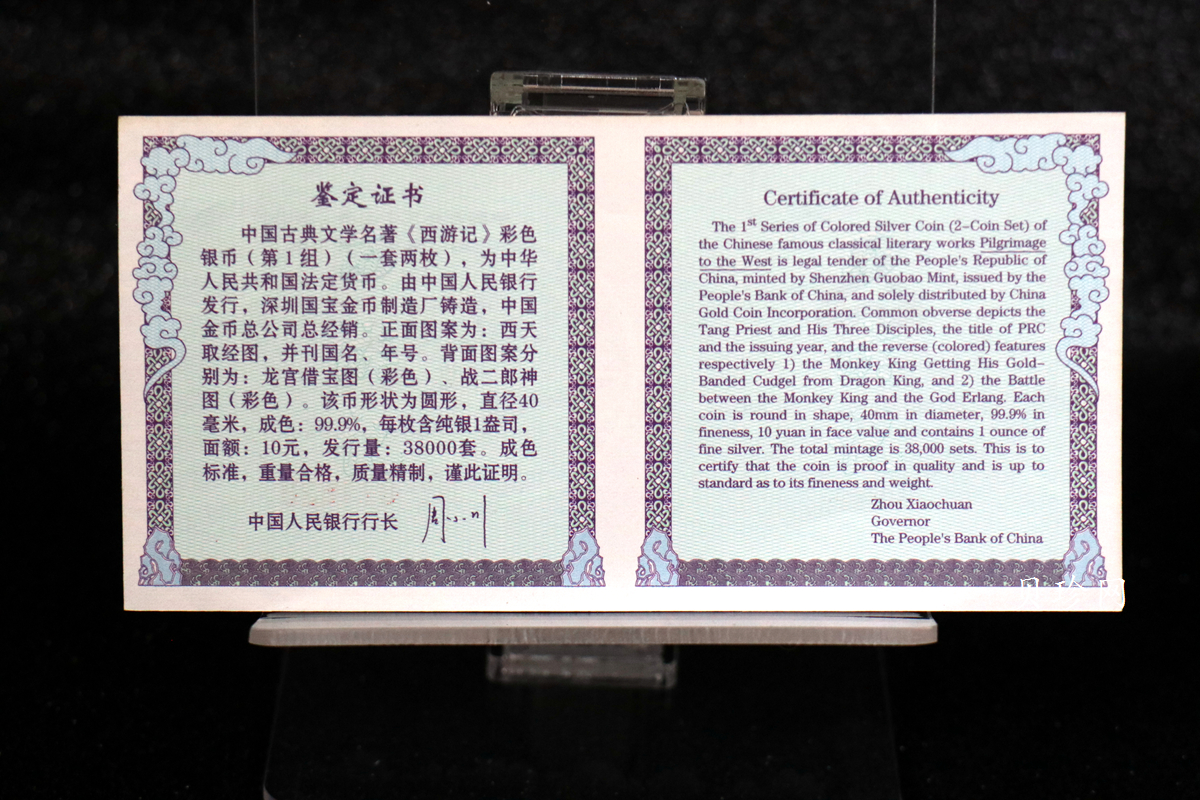 鉴定证书
中国古典文学名著《西游记》彩色
银币（第1组）（一套两枚），为中华
人民共和国法定货币。由中国人民银行
发行，深圳国宝金币制造厂铸造，中国
金币总公司总经销。正面图案为：西天
取经图，并刊国名、年号。背面图案分
别为：龙宫借宝图（彩色）、战二郎神
图（彩色）。该币形状为圆形，直径40
毫米，成色：99.9%，每枚含纯银1盎司，
面额：10元，发行量：38000套。成色
标准，重量合格，质量精制，谨此证明。
中国人民银行行长 周小川
Certificate of Authenticity
The 1st Series of Colored Silver Coin (2-Coin Set) of
the Chinese famous classical literary works Pilgrimage
to the West is legal tender of the People's Republic of
China, minted by Shenzhen Guobao Mint, issued by the
People's Bank of China, and solely distributed by China
Gold Coin Incorporation. Common obverse depicts the
Tang Priest and His Three Disciples, the title of PRC
and the issuing year, and the reverse (colored) features
respectively 1) the Monkey King Getting His Gold-
Banded Cudgel from Dragon King, and 2) the Battle
between the Monkey King and the God Erlang. Each
coin is round in shape, 40mm in diameter, 99.9% in
fineness, 10 yuan in face value and contains 1 ounce of
fine silver. The total mintage is 38,000 sets. This is to
certify that the coin is proof in quality and is up to
standard as to its fineness and weight.
Zhou Xiaochuan
Governor
The People's Bank of China